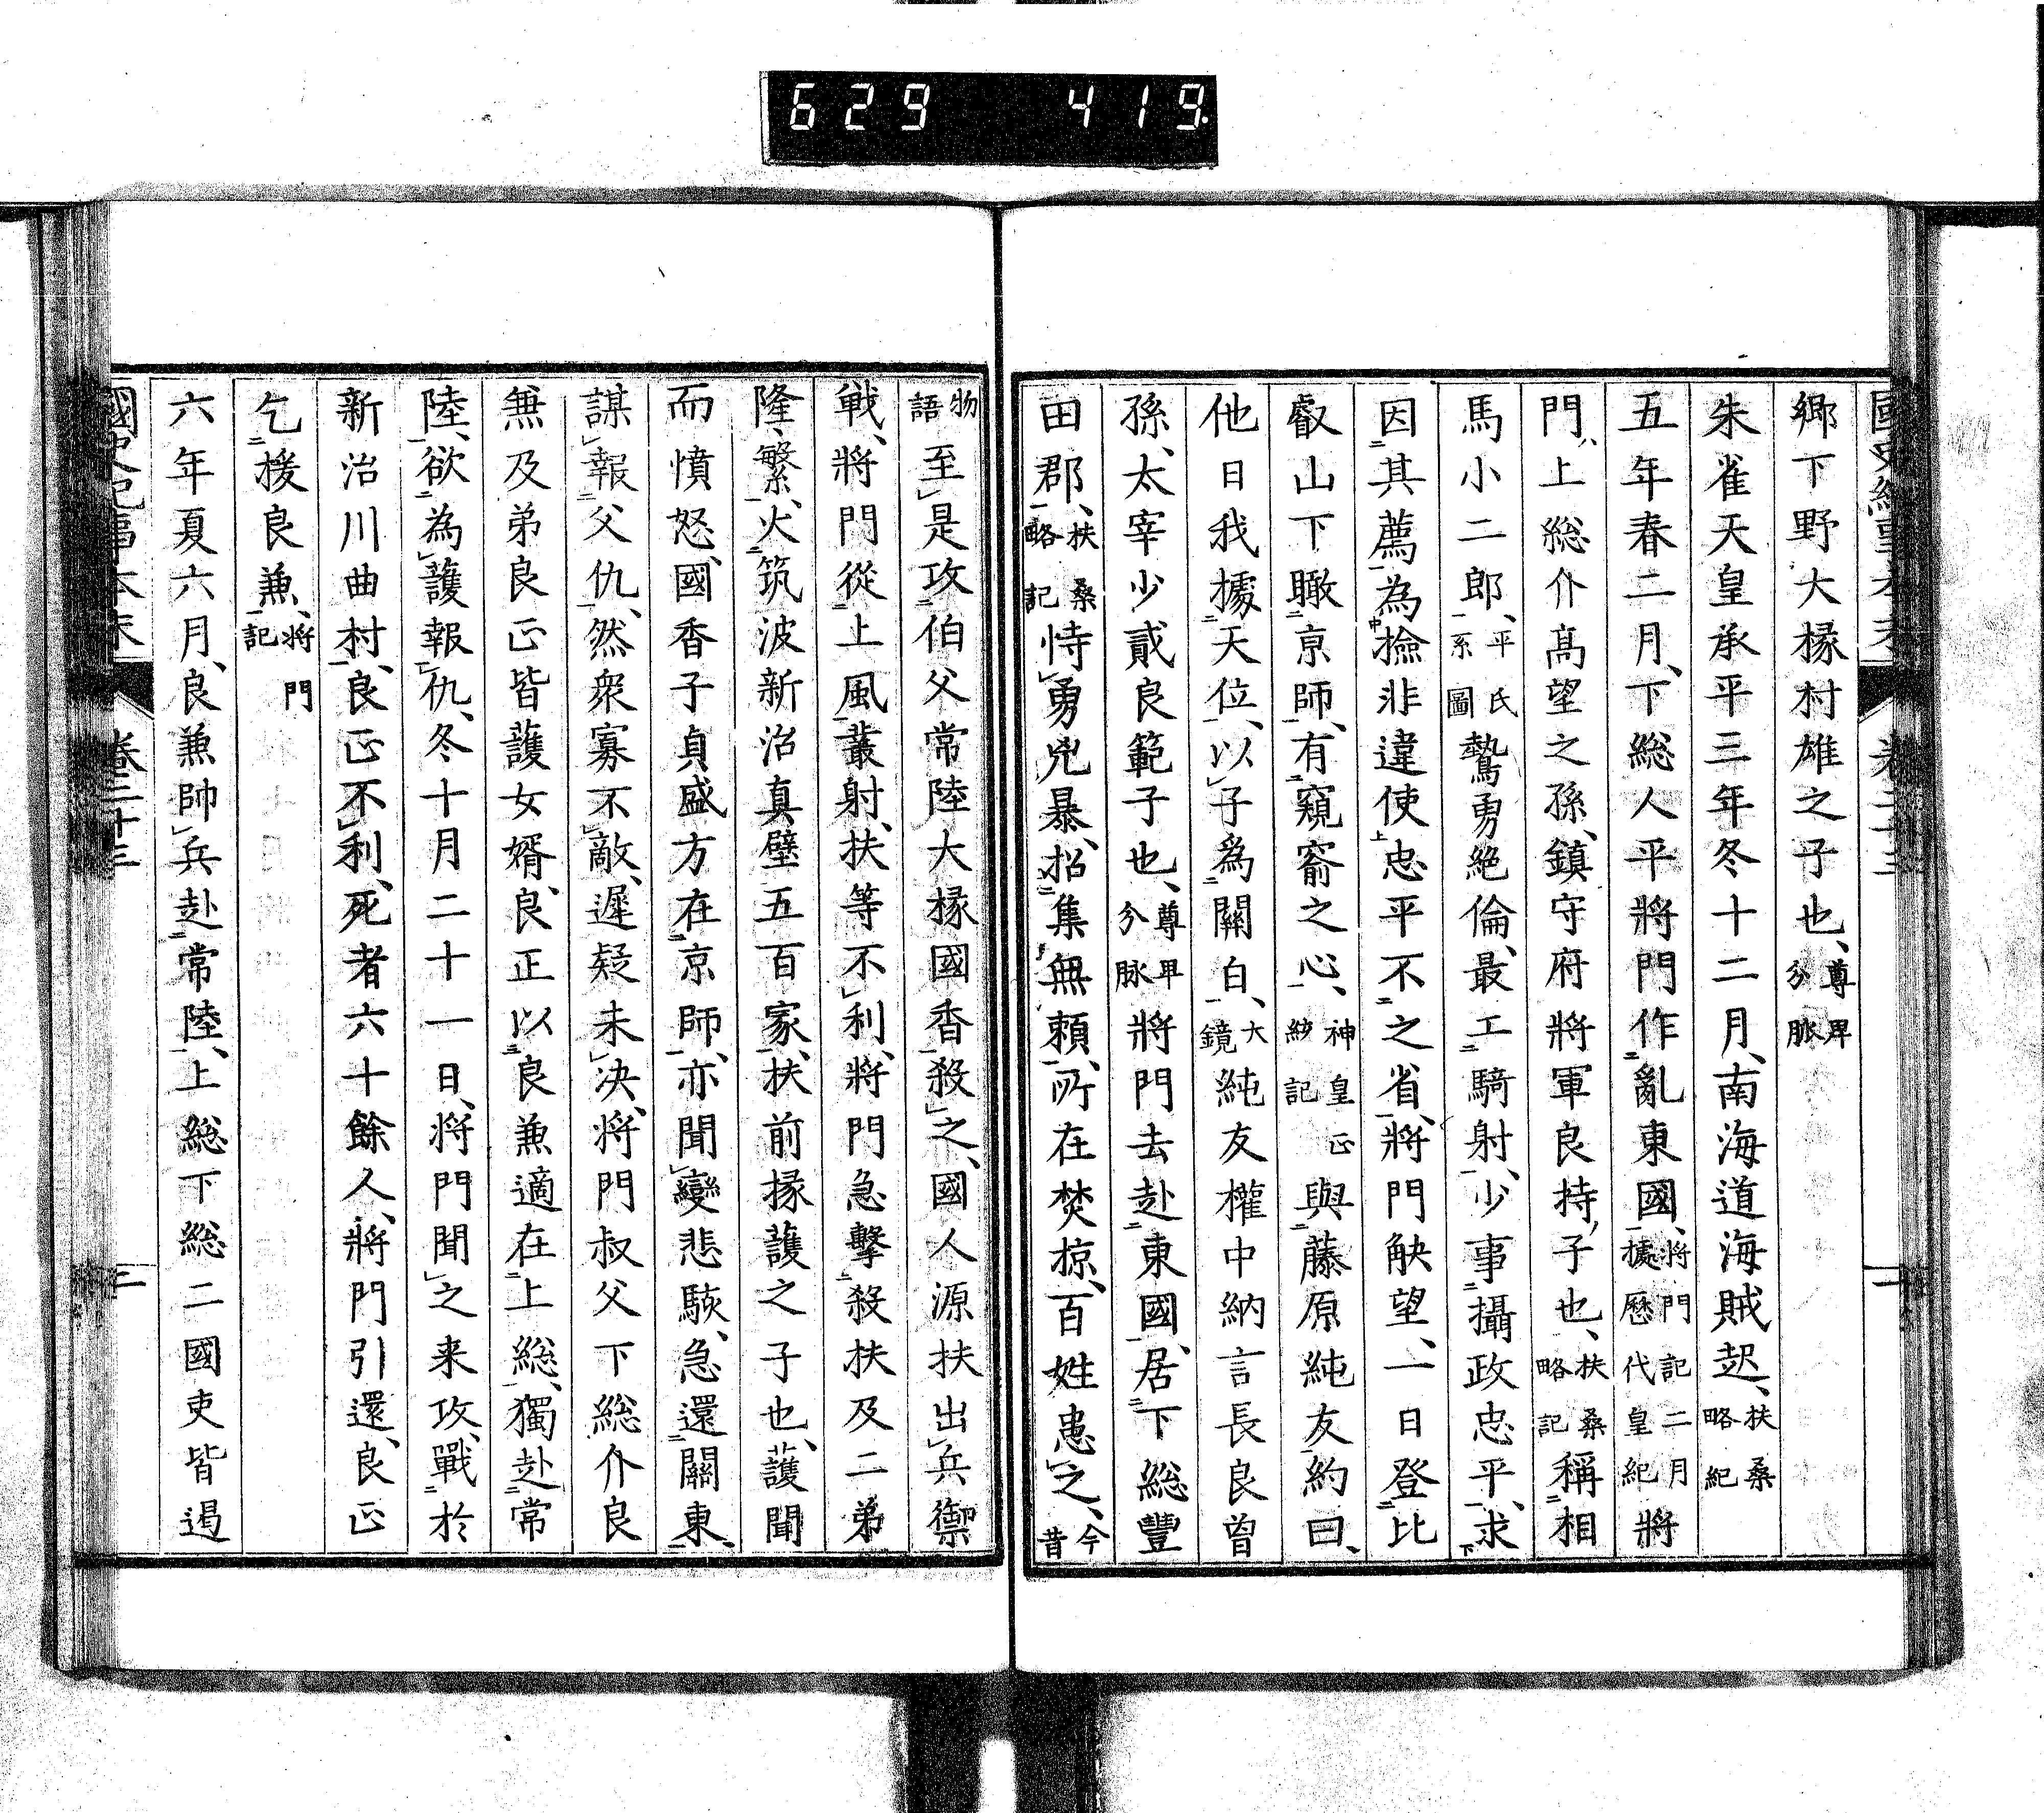 629 419
鄉下野大掾村雄之子也、尊卑分脈
朱雀天皇承平三年冬十二月、南海道海賊起、扶桑略紀
五年春二月、下総人平將門作亂東國、將門記二月據歷代皇紀將
門、上総介高望之孫、鎮守府將軍良持子也、扶桑略記稱相
馬小二郎、平氏系圖驁勇絶倫、最工騎射、少事攝政忠平、求
因其薦為撿非違使忠平不之省、將門觖望、一日登比
叡山下瞰京師、有窺窬之心、神皇正統記與藤原純友約曰、
他日我據天位、以子為關白、大鏡純友權中納言長良曾
孫、太宰少貳良範子也、尊卑分脈將門去赴東國、居下総豐
田郡、扶桑略記恃勇兇暴、招集無賴、所在焚掠、百姓患之、今昔
物語至是攻伯父常陸大掾國香殺之、國人源扶出兵禦
戰、將門從上風叢射、扶等不利、將門急擊殺扶及二弟
隆、繁、火筑波新治真壁五百家、扶前掾護之子也、護聞
而憤怒、國香子貞盛方在京師、亦聞變悲駭、急還關東、
謀報父仇、然衆寡不敵、遲疑未決、將門叔父下総介良
無及弟良正皆護女婿、良正以良兼適在上総、獨赴常
陸、欲為護報仇、冬十月二十一日、將門聞之来攻、戰於
新治川曲村、良正不利、死者六十餘人、將門引還、良正
乞援良兼、將門記
六年夏六月、良兼帥兵赴常陸、上総下総二國吏皆遏
國史紀事本末 卷二十三 二